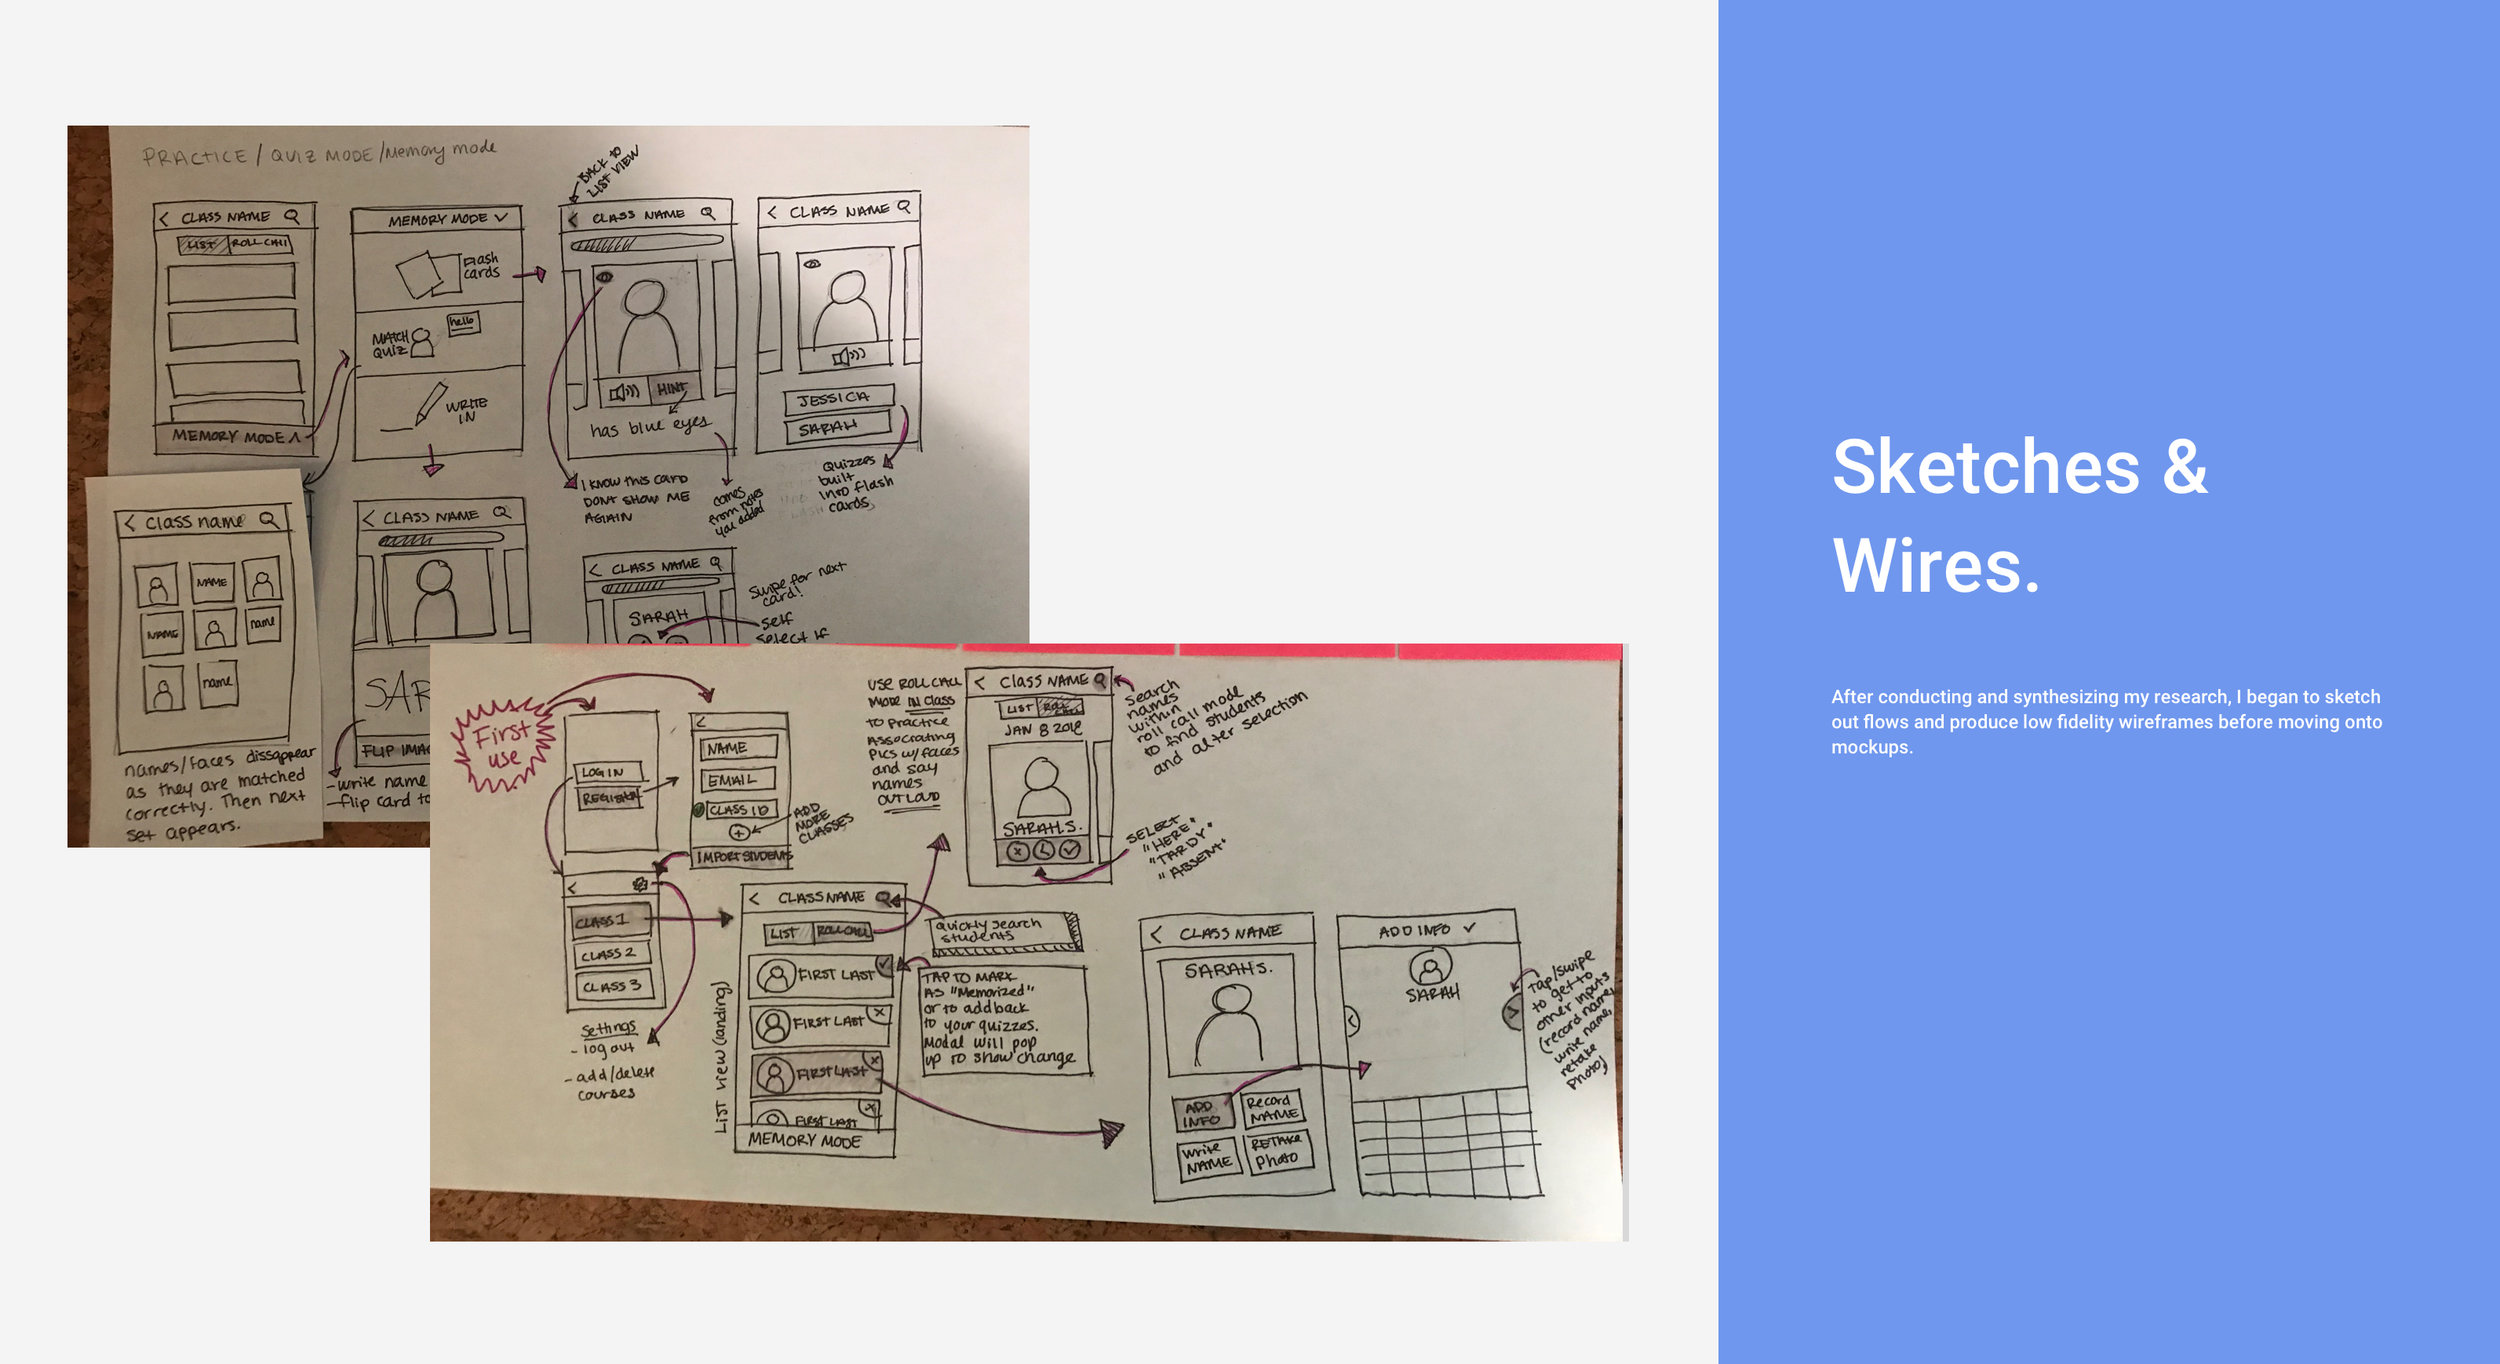 PRACTICE / QUIZ MODE / Memory mode
BACK TO
LIST VIEW
< CLASS NAME
LIST ROLL CALL
MEMORY MODE
MEMORY MODE
Flash
cards
MATCH
QUIZ
hello
WRITE
IN
< CLASS NAME
HINT
has blue eyes
I KNOW THIS CARD
DONT SHOW ME
AGAIN
comes
from notes
you added
< CLASS NAME
JESSICA
SARAH
Quizzes
built
INTO flash
cards
< Class name
NAME
NAME
name
name
names/faces dissappear
as they are matched
correctly. Then next
set appears.
< CLASS NAME
SAR
FLIP IMAG
- write name
- flip card to
< CLASS NAME
SARAH
Swipe for next
card!
self
select if
First
use
LOG IN
REGISTER
<
NAME
EMAIL
CLASS ID
+
ADD
MORE
CLASSES
IMPORT STUDENTS
<
CLASS 1
CLASS 2
CLASS 3
Settings
- log out
- add/delete
courses
USE ROLL CALL
MODE IN Class
TO practice
Associating
PICS w/ faces
and say
names
OUT LOUD
< Class NAME
LIST ROLL CALL
JAN 8 2018
SARAH S.
Search
names
within
roll call mode
to find students
and alter selection
SELECT
"HERE"
"TARDY"
"ABSENT"
List view (landing)
< CLASS NAME
LIST ROLL CALL
FIRST LAST
FIRST LAST
FIRST LAST
FIRST LAST
MEMORY MODE
quickly search
students
TAP TO MARK
AS "Memorized"
or to add back
to your quizzes.
Modal will pop
up to show change
< CLASS NAME
SARAH S.
ADD
INFO
Record
NAME
Write
NAME
RETAKE
Photo
ADD INFO
SARAH
Tap/swipe
to get to
other inputs
(record name,
write name,
retake
photo)
Sketches &
Wires.
After conducting and synthesizing my research, I began to sketch
out flows and produce low fidelity wireframes before moving onto
mockups.